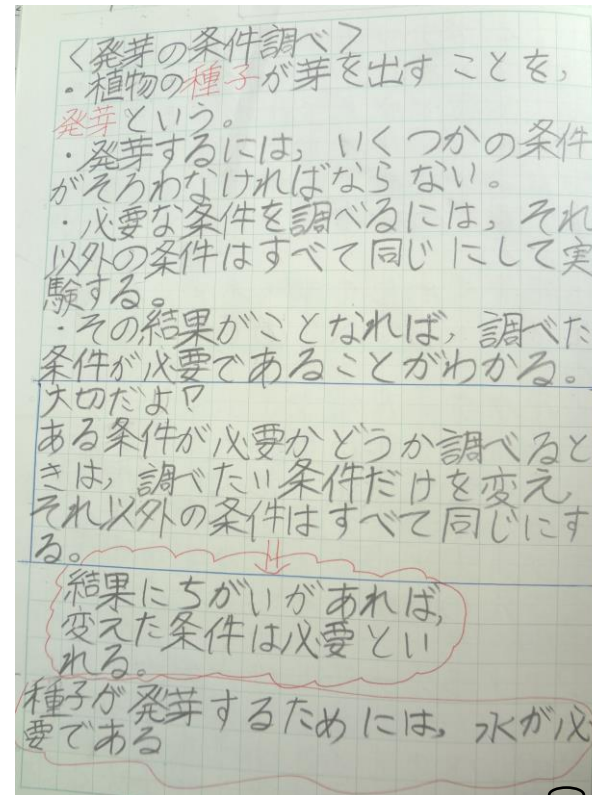 〈発芽の条件調べ〉
・植物の種子が芽を出すことを,
発芽という。
・発芽するには, いくつかの条件
がそろわなければならない。
・必要な条件を調べるには, それ
以外の条件はすべて同じにして実
験する。
・その結果がことなれば, 調べた
条件が必要であることがわかる。
大切だよ?
ある条件が必要かどうか調べると
きは, 調べたい条件だけを変え,
それ以外の条件はすべて同じにす
る。
結果にちがいがあれば,
変えた条件は必要とい
れる。
種子が発芽するためには, 水が必
要である